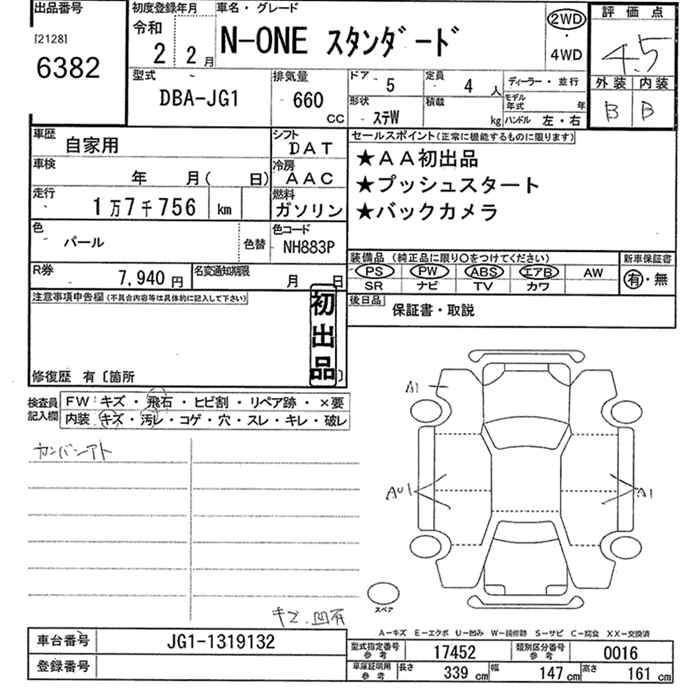 出品番号
[2128]
6382
初度登録年月
令和
2 2月
車名・グレード
N-ONE スタンダード
2WD
・
4WD
評価点
4.5
外装 内装
B B
型式
DBA-JG1
排気量
660
CC
ドア
5
定員
4 人
形状
ステW
積載
kg
ディーラー・並行
モデル年式 年
ハンドル 左・右
車歴
自家用
シフト
DAT
車検
年 月( 日)
冷房
AAC
走行
1万7千756 km
燃料
ガソリン
色
パール
色替
色コード
NH883P
R券
7,940円
名変通知期限
月 日
セールスポイント(正常に機能するものに限ります)
★AA初出品
★プッシュスタート
★バックカメラ
装備品 (純正品に限り○をつけてください)
PS PW ABS エアB AW
SR ナビ TV カワ
新車保証書
有・無
後日品
保証書・取説
注意事項申告欄(不具合内容等は具体的に記入して下さい)
初出品
修復歴 有〔箇所 〕
検査員記入欄
FW:キズ・飛石・ヒビ割・リペア跡・×要
内装:キズ・汚レ・コゲ・穴・スレ・キレ・破レ
カンバンアト
キズ、凹有
A1
AU1
A1
スペア
A−キズ E−エクボ U−凹み W−補修跡 S−サビ C−腐食 XX−交換済
車台番号
JG1-1319132
登録番号
型式指定番号 参考
17452
類別区分番号 参考
0016
車庫証明用 参考
長さ 339 cm 幅 147 cm 高さ 161 cm